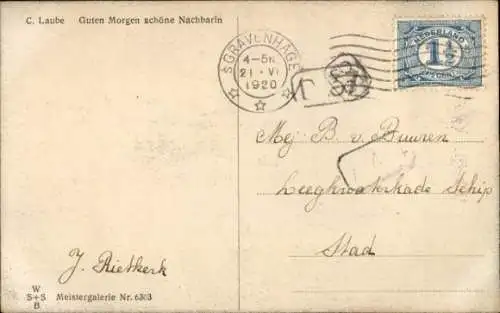 C. Laube Guten Morgen schöne Nachbarin
'SGRAVENHAGE
4-5N
21 VI
1920
NEDERLAND
1½
CENT
Mej B. v. Buuren
Leeghwaterkade Schip
Stad
J. Rietkerk
W
S+S
B
Meistergalerie Nr. 6303